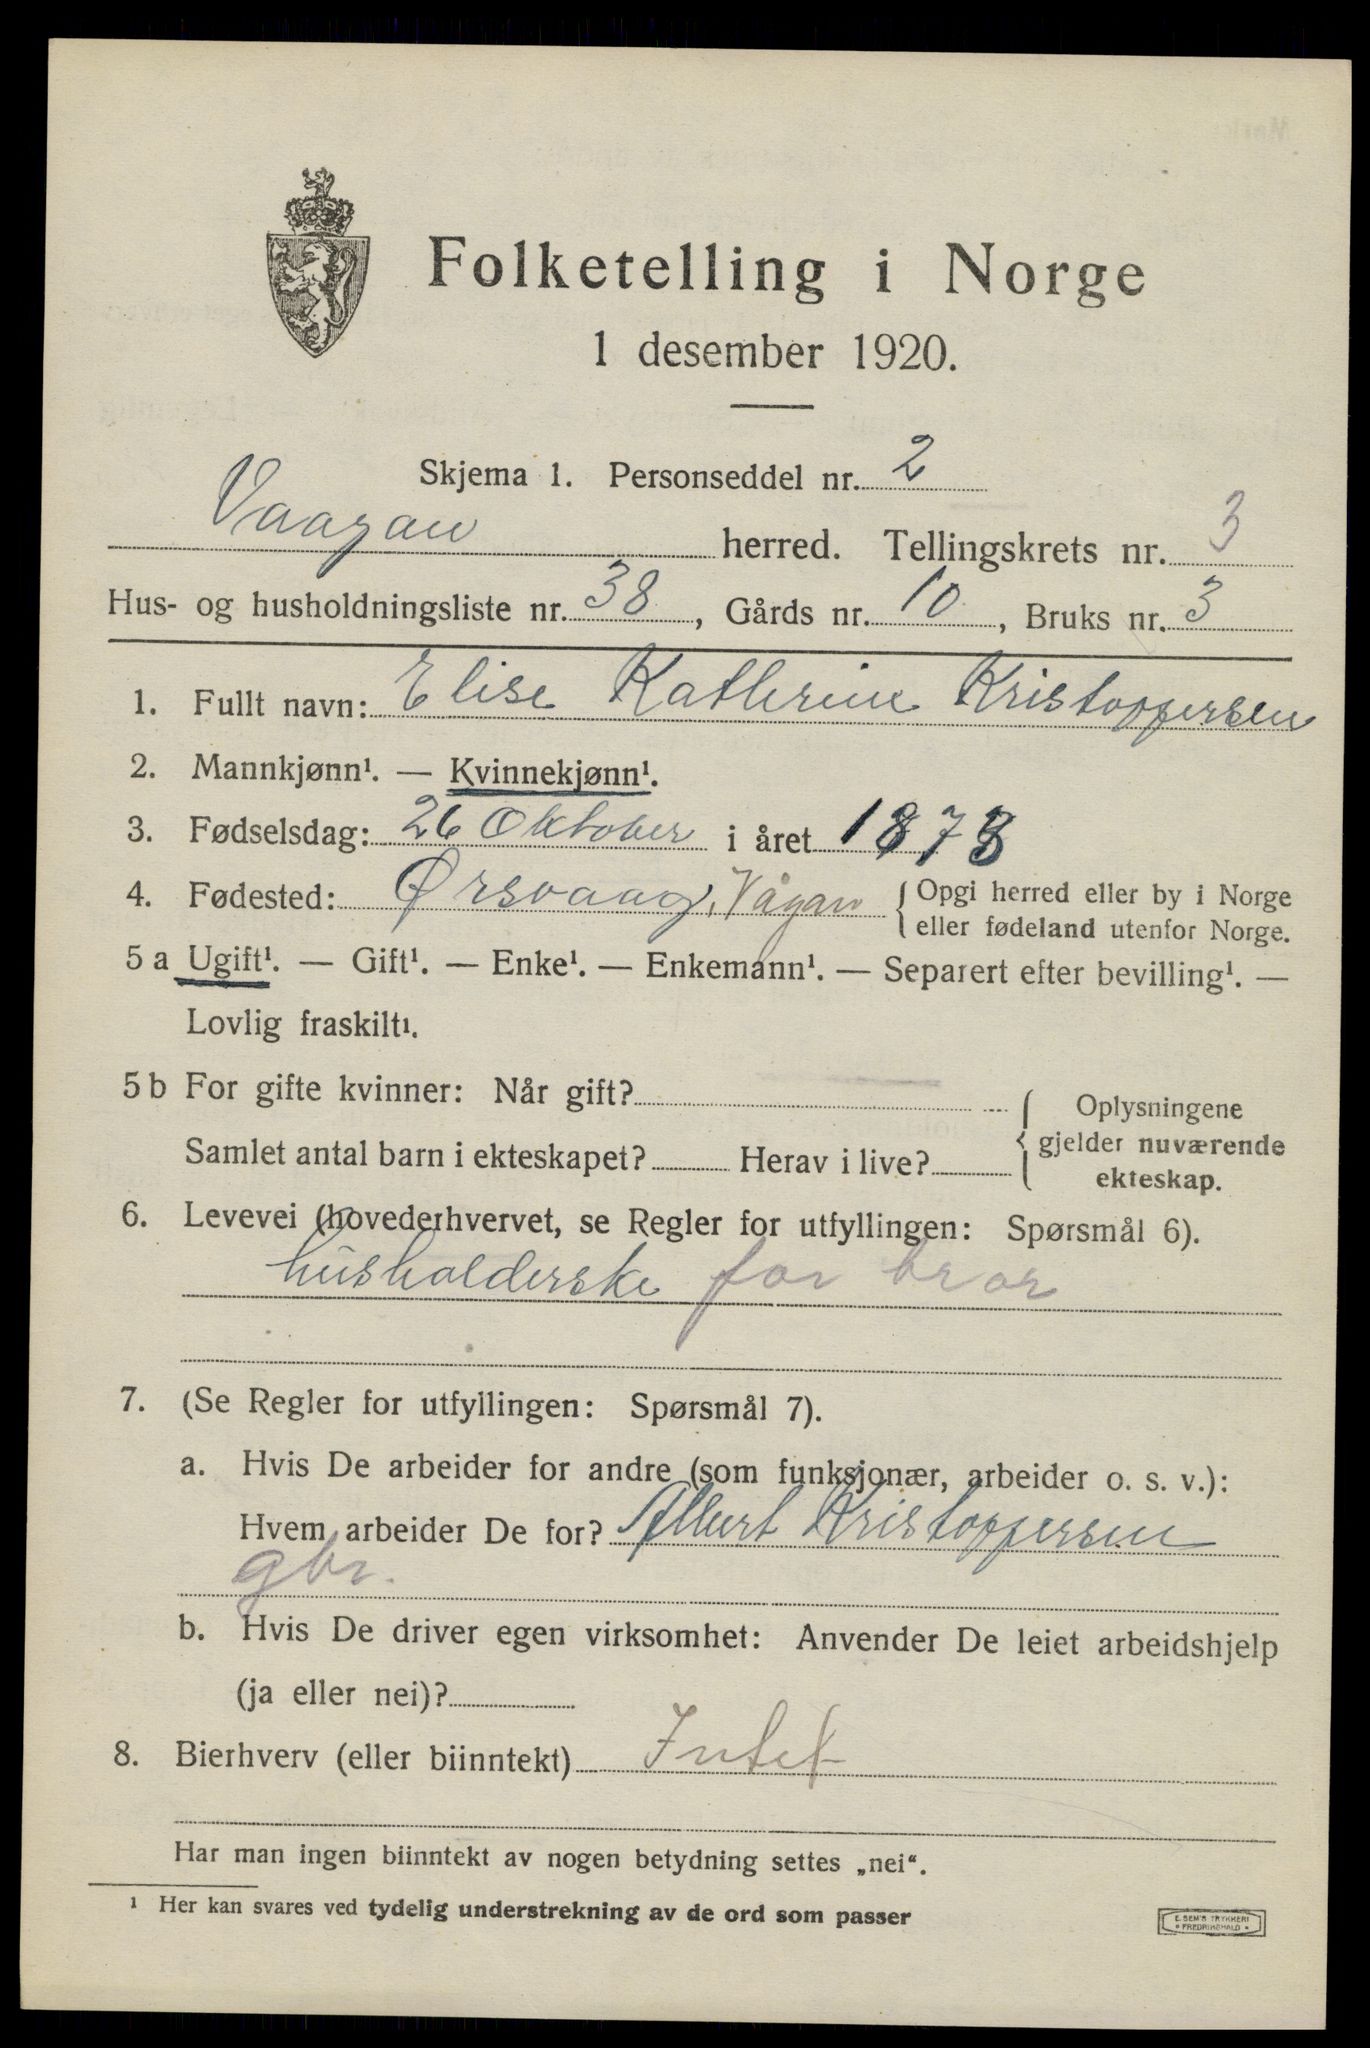 Folketelling i Norge
1 desember 1920.
Skjema 1. Personseddel nr. 2
Vaagan herred. Tellingskrets nr. 3
Hus- og husholdningsliste nr. 38, Gårds nr. 10, Bruks nr. 3
1. Fullt navn: Elise Kathrine Kristoffersen
2. Mannkjønn¹. — Kvinnekjønn¹.
3. Fødselsdag: 26 Oktober i året 1873
4. Fødested: Ørsvaag, Vågan { Opgi herred eller by i Norge
eller fødeland utenfor Norge.
5 a Ugift¹. — Gift¹. — Enke¹. — Enkemann¹. — Separert efter bevilling¹. —
Lovlig fraskilt¹.
5 b For gifte kvinner: Når gift?
Samlet antal barn i ekteskapet? Herav i live?
{ Oplysningene
gjelder nuværende
ekteskap.
6. Levevei (hovederhvervet, se Regler for utfyllingen: Spørsmål 6).
husholderske for bror
7. (Se Regler for utfyllingen: Spørsmål 7).
a. Hvis De arbeider for andre (som funksjonær, arbeider o. s. v.):
Hvem arbeider De for? Albert Kristoffersen
gbr.
b. Hvis De driver egen virksomhet: Anvender De leiet arbeidshjelp
(ja eller nei)?
8. Bierhverv (eller biinntekt) Intet
Har man ingen biinntekt av nogen betydning settes „nei“.
¹ Her kan svares ved tydelig understrekning av de ord som passer
E. SEM'S TRYKKERI
FREDRIKSHALD